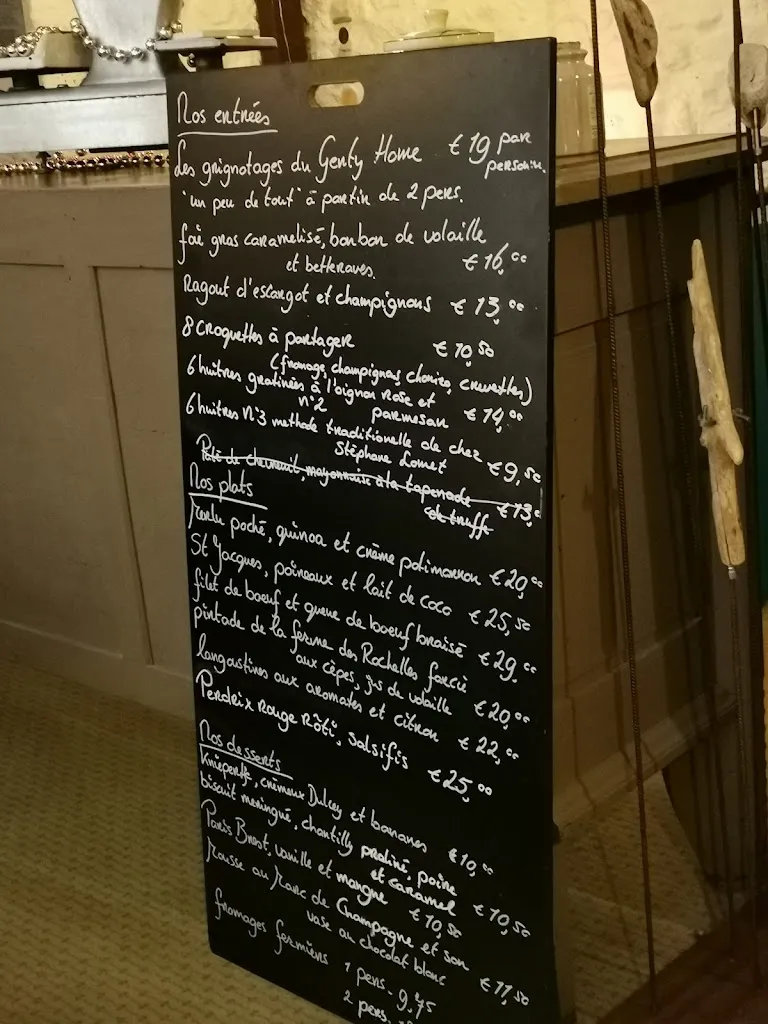 Nos entrées
Les grignotages du Genty Home € 19 par
personne.
"un peu de tout" à partir de 2 pers.
foie gras caramelisé, bonbon de volaille
et betteraves. € 16,00
Ragout d'escargot et champignons € 13,00
8 croquettes à partager € 10,50
(fromage, champignons, chorizo, crevettes)
6 huitres gratinées à l'oignon Rose et
n°2 parmesan € 14,00
6 huitres N°3 methode traditionelle de chez
Stéphane Lomet € 9,50
Paté de chevreuil, mayonnaise à la tapenade
de truffe € 13,
Nos plats
Merlu poché, quinoa et crème potimarron € 20,00
St Jacques, poireaux et lait de coco € 25,50
filet de boeuf et queue de boeuf braisé € 29,00
pintade de la ferme des Rochelles farcie
aux cèpes, jus de volaille € 20,00
langoustines aux aromates et citron € 22,00
Perdrix rouge Rôti, Salsifis € 25,00
Nos desserts
crémeux Dulcey et bananes € 10,00
biscuit meringué, chantilly praliné, poire
et caramel € 10,50
Paris Brest, vanille et mangue € 10,50
Mousse au Marc de Champagne et son
vase au chocolat blanc € 11,50
fromages fermiers 1 pers. 9,45
2 pers.